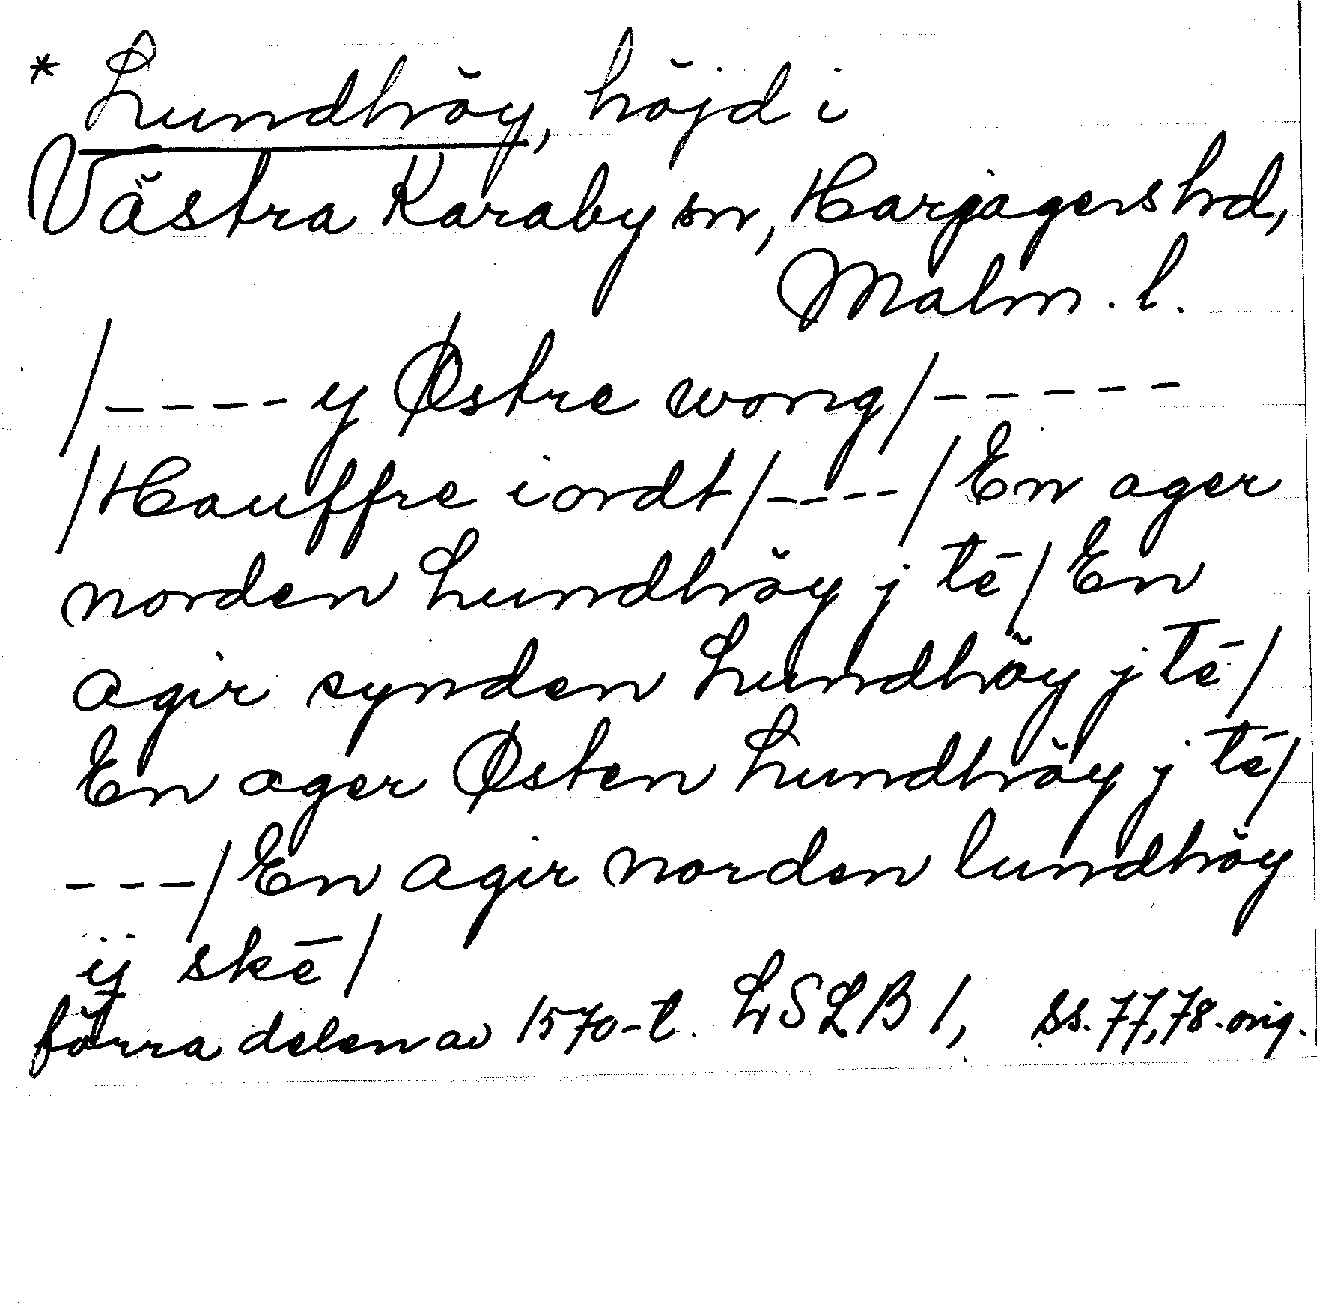 * Lundhöy, höjd i
Västra Karaby sn, Harjagers hd,
Malm. l.
/---- y Østre wong/-----
/Hauffre iordt/----/En ager
norden Lundhöy j tē/En
agir synden Lundhöy j tē/
En ager Østen Lundhöy j tē/
---/En agir norden lundhöy
ij skē/
förra delen av 1570-t. LSLB 1, ss. 77, 78. orig.